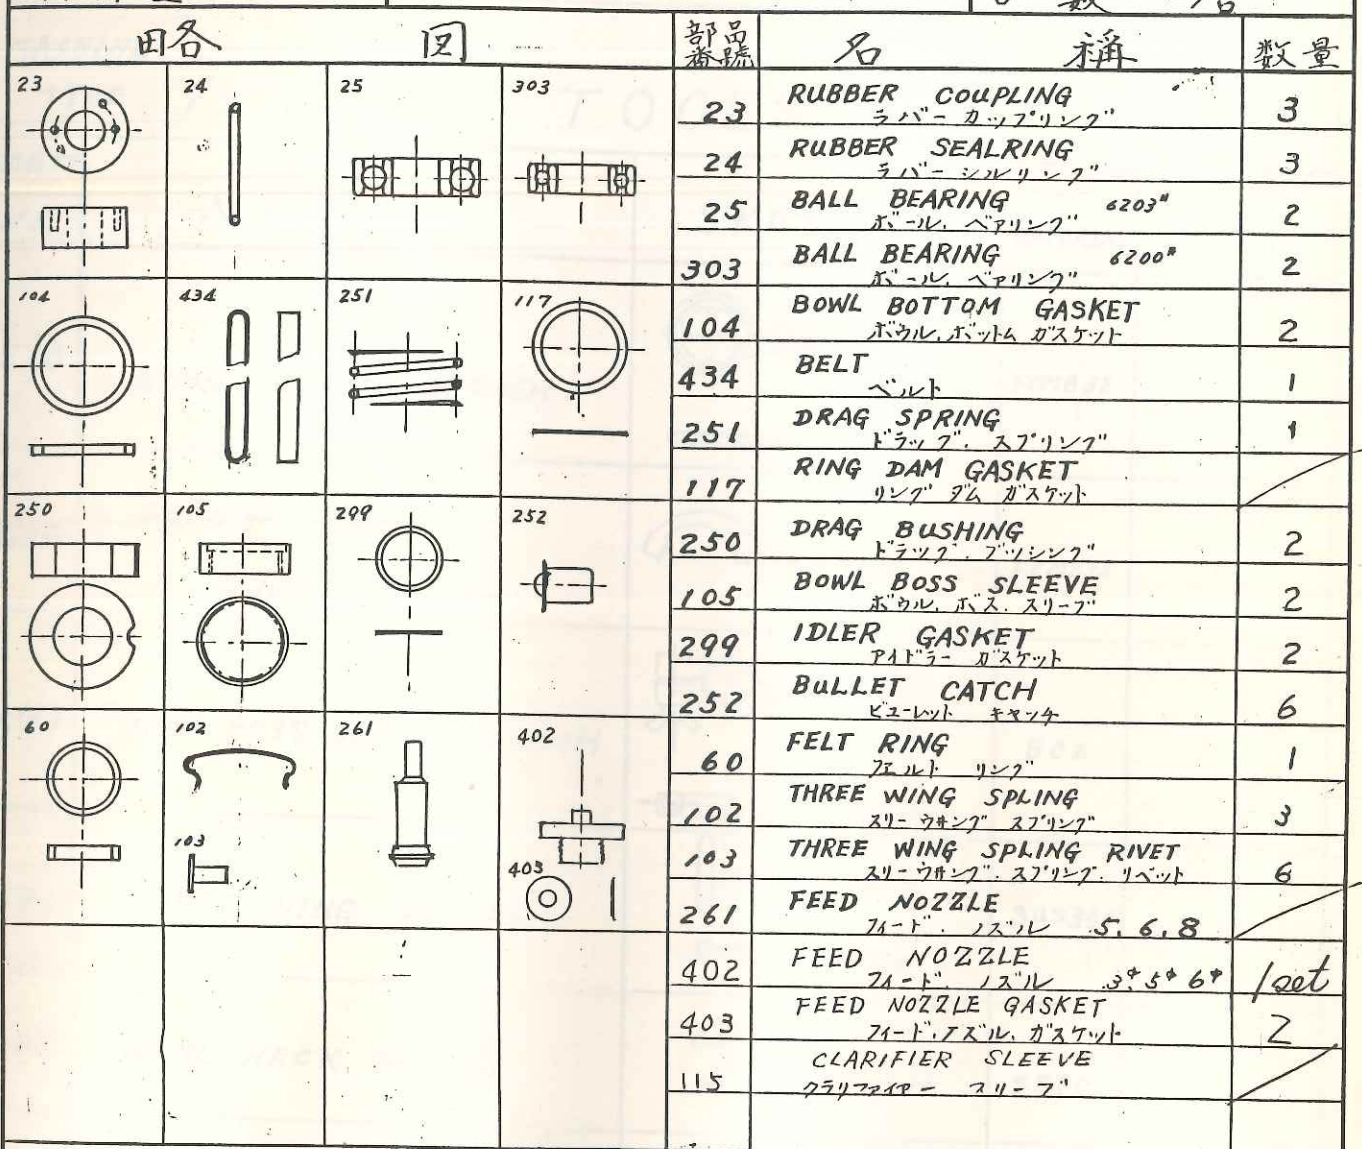 数 名
略 図 部品番號 名 稱 数量
23 24 25 303
104 434 251 117
250 105 299 252
60 102 261 402
103
403
23 RUBBER COUPLING 3
ラバー カップリング
24 RUBBER SEALRING 3
ラバー シルリング
25 BALL BEARING 6203# 2
ボール、ベアリング
303 BALL BEARING 6200# 2
ボール、ベアリング
104 BOWL BOTTOM GASKET 2
ボウル、ボットム ガスケット
434 BELT 1
ベルト
251 DRAG SPRING 1
ドラッグ、スプリング
117 RING DAM GASKET
リング ダム ガスケット
250 DRAG BUSHING 2
ドラッグ、ブッシング
105 BOWL BOSS SLEEVE 2
ボウル、ボス、スリーブ
299 IDLER GASKET 2
アイドラー ガスケット
252 BULLET CATCH 6
ビューレット キャッチ
60 FELT RING 1
フェルト リング
102 THREE WING SPLING 3
スリーウヰング スプリング
103 THREE WING SPLING RIVET 6
スリーウヰング、スプリング、リベット
261 FEED NOZZLE
フィード、ノズル 5.6.8
402 FEED NOZZLE 1set
フィード、ノズル 3φ 5φ 6φ
403 FEED NOZZLE GASKET 2
フィード、ノズル、ガスケット
115 CLARIFIER SLEEVE
クラリファイヤー スリーブ